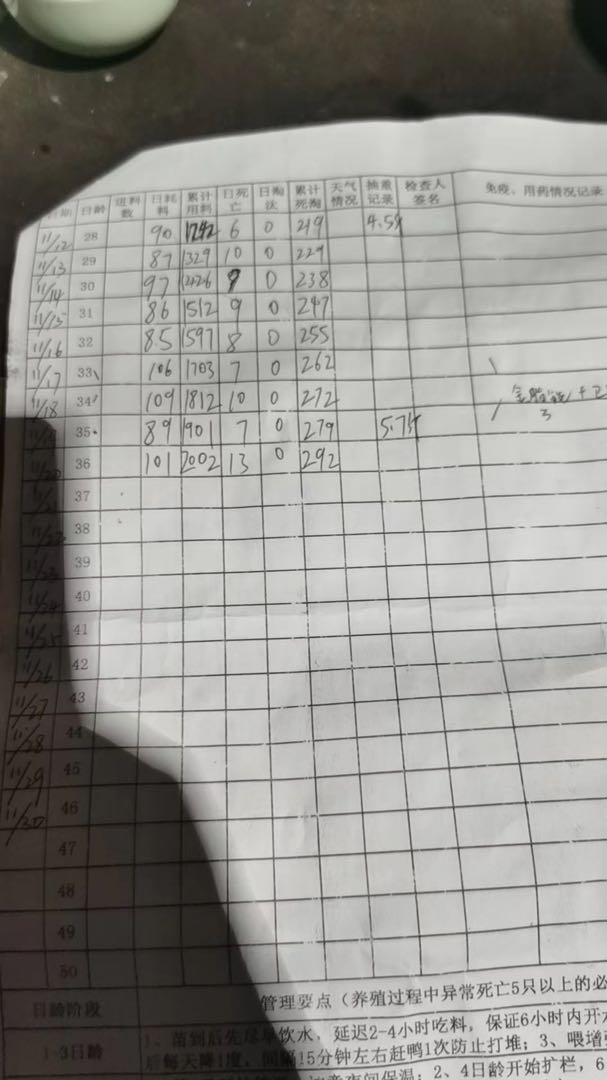 日期 日龄 进料数 日耗料 累计用料 日死亡 日淘汰 累计死淘 天气情况 抽重记录 检查人签名 免疫、用药情况记录
11/12 28 90 1242 6 0 219 4.59
11/13 29 87 1329 10 0 229
11/14 30 97 1426 9 0 238
11/15 31 86 1512 9 0 247
11/16 32 85 1597 8 0 255
11/17 33 106 1703 7 0 262
11/18 34 109 1812 10 0 272
11/19 35 89 1901 7 0 279
11/20 36 101 2002 13 0 292
11/21 37
11/22 38
11/23 39
11/24 40
11/25 41
11/26 42
11/27 43
11/28 44
11/29 45
11/30 46
47
48
49
50
日龄阶段 管理要点（养殖过程中异常死亡5只以上的必
1-3日龄 1、苗到后先尽早饮水，延迟2-4小时吃料，保证6小时内开
后每天降1度，间隔15分钟左右赶鸭1次防止打堆；3、喂增
夜间保温；2、4日龄开始扩栏，6